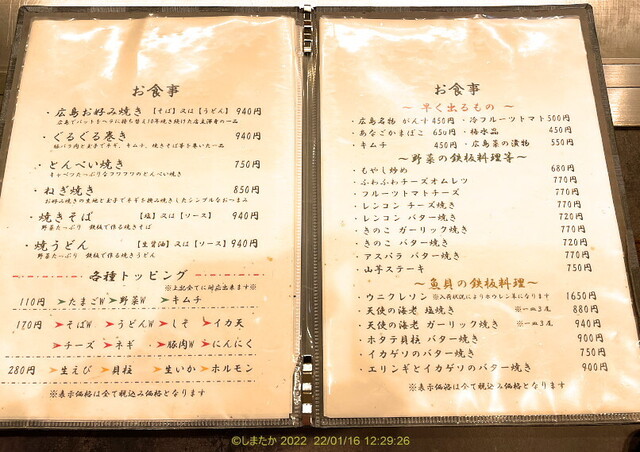 お食事
・広島お好み焼き 【そば】又は【うどん】 940円
広島でバットをヘラに持ち替え18年焼き続けた店主渾身の一品
・ぐるぐる巻き 940円
豚バラ肉とお玉子でネギ、キムチ、焼きそば等を巻いた一品
・とんぺい焼き 750円
キャベツたっぷりなフワフワのとんぺい焼き
・ねぎ焼き 850円
お好み焼きの生地と玉子でネギを挟み焼きしたシンプルなお〜まみ
・焼きそば 【塩】又は【ソース】 940円
野菜たっぷり 鉄板で作る焼きそば
・焼うどん 【生醤油】又は【ソース】 940円
野菜たっぷり 鉄板で作る焼きうどん
各種トッピング
※上記全てに対応出来ます※
110円 ➤たまごW ➤野菜W ➤キムチ
170円 ➤そばW ➤うどんW ➤しそ ➤イカ天
➤チーズ ➤ネギ ➤豚肉W ➤にんにく
280円 ➤生えび ➤貝柱 ➤生いか ➤ホルモン
※表示価格は全て税込み価格となります
お食事
〜 早く出るもの 〜
・広島名物 がんす 450円 ・冷フルーツトマト 500円
・あなごかまぼこ 650円 ・梅水晶 450円
・キムチ 450円 ・広島菜の漬物 550円
〜野菜の鉄板料理等〜
・もやし炒め 680円
・ふわふわチーズオムレツ 770円
・フルーツトマトチーズ 770円
・レンコン チーズ焼き 770円
・レンコン バター焼き 720円
・きのこ ガーリック焼き 770円
・きのこ バター焼き 720円
・アスパラ バター焼き 770円
・山芋ステーキ 750円
〜魚貝の鉄板料理〜
・ウニクレソン ※入荷状況によりホウレン草になります 1650円
・天使の海老 塩焼き ※一皿3尾 880円
・天使の海老 ガーリック焼き ※一皿3尾 940円
・ホタテ貝柱 バター焼き 900円
・イカゲソのバター焼き 750円
・エリンギとイカゲソのバター焼き 900円
※表示価格は全て税込み価格となります
©しまたか 2022 22/01/16 12:29:26